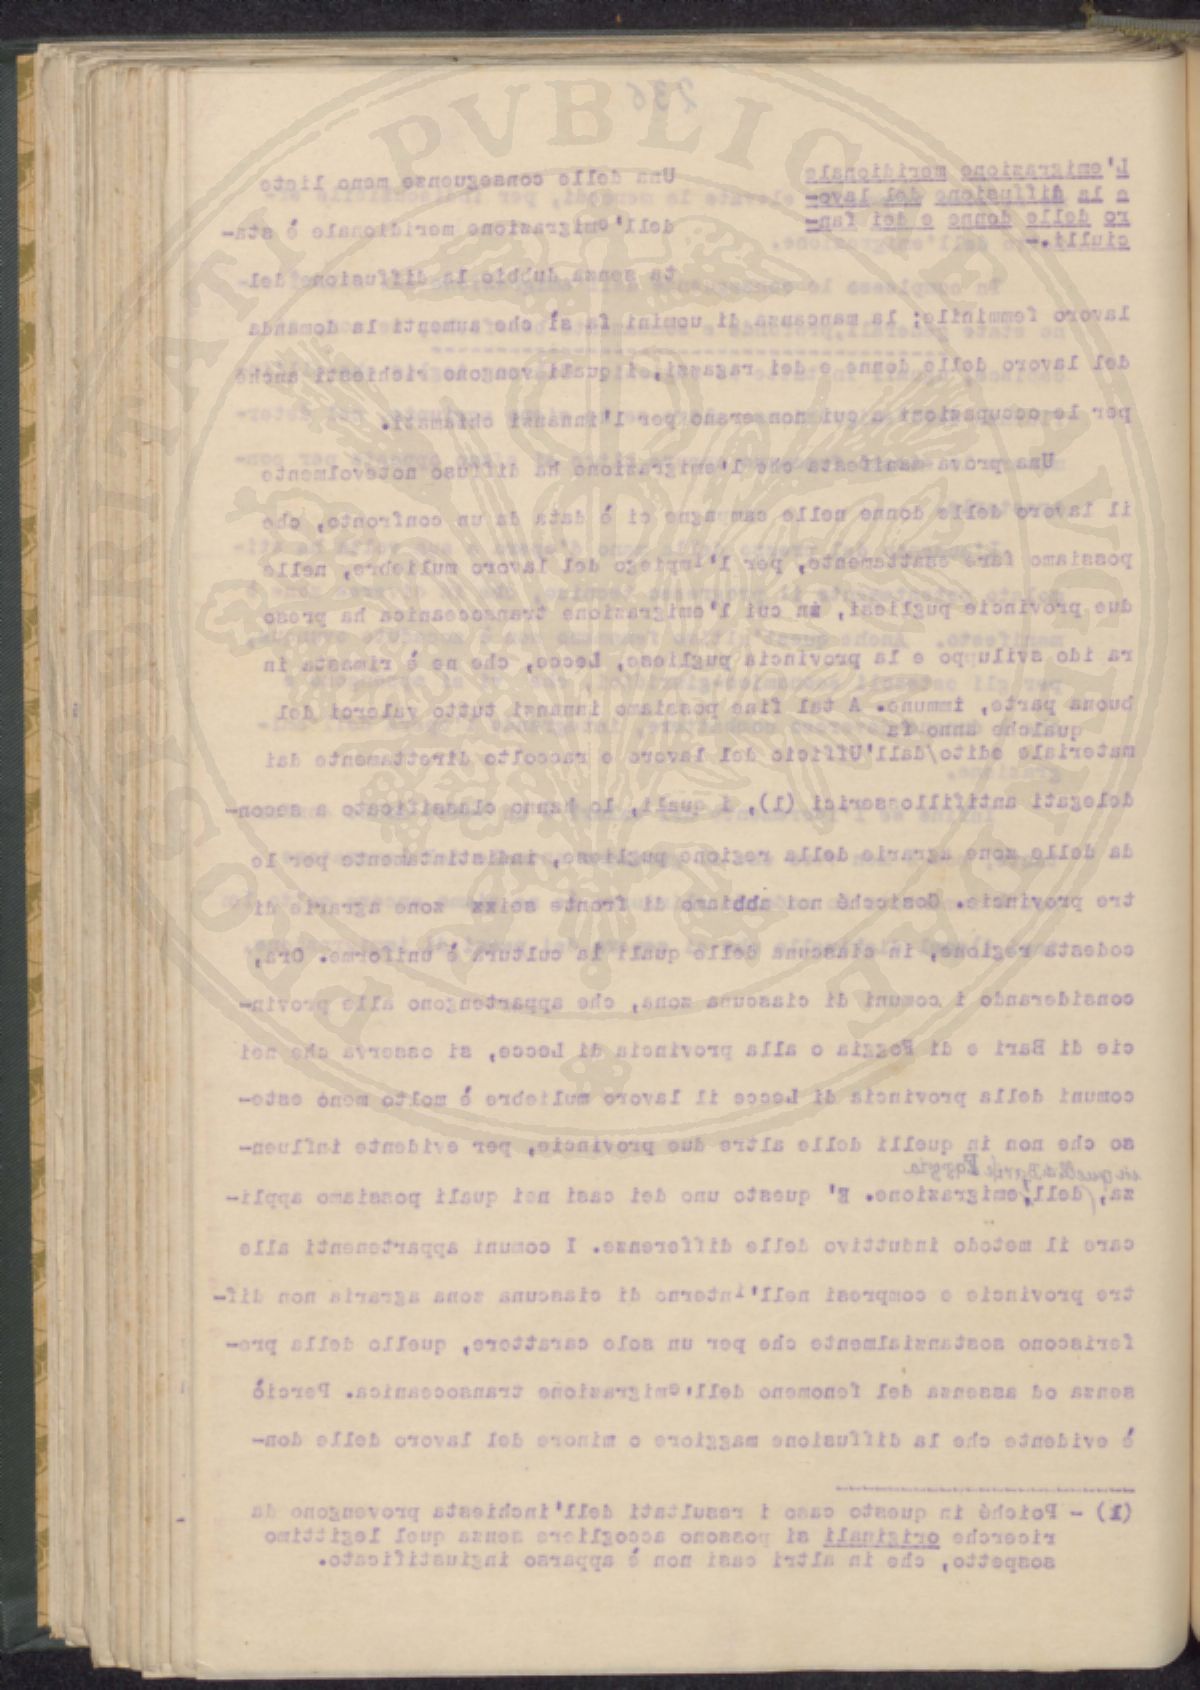 236
L'emigrazione meridionale
e la diffusione del lavo-
ro delle donne e dei fan-
ciulli.-
Una delle conseguenze meno liete
dell'emigrazione meridionale è sta-
ta senza dubbio la diffusione del
lavoro femminile; la mancanza di uomini fa sì che aumenti la domanda
del lavoro delle donne e dei ragazzi, i quali vengono richiesti anche
per le occupazioni a cui non erano per l'innanzi chiamati.
Una prova manifesta che l'emigrazione ha diffuso notevolmente
il lavoro delle donne nelle campagne ci è data da un confronto, che
possiamo fare esattamente, per l'impiego del lavoro muliebre, nelle
due provincie pugliesi, in cui l'emigrazione transoceanica ha preso
ra ido sviluppo e la provincia pugliese, Lecce, che ne è rimasta in
buona parte, immune. A tal fine possiamo innanzi tutto valerci del
qualche anno fa
materiale edito/dall'Ufficio del lavoro e raccolto direttamente dai
delegati antifillosserici (1), i quali, lo hanno classificato a secon-
da delle zone agrarie della regione pugliese, indistintamente per le
tre provincie. Cosicché noi abbiamo di fronte seixx zone agrarie di
codesta regione, in ciascuna delle quali la cultura è uniforme. Ora,
considerando i comuni di ciascuna zona, che appartengono alle provin-
cie di Bari e di Foggia o alla provincia di Lecce, si osserva che nei
comuni della provincia di Lecce il lavoro muliebre è molto meno este-
so che non in quelli delle altre due provincie, per evidente influen-
in quelle di Bari e Foggia
za,/dell'emigrazione. E' questo uno dei casi nei quali possiamo appli-
care il metodo induttivo delle differenze. I comuni appartenenti alle
tre provincie e compresi nell'interno di ciascuna zona agraria non dif-
feriscono sostanzialmente che per un solo carattere, quello della pre-
senza od assenza del fenomeno dell'emigrazione transoceanica. Perciò
è evidente che la diffusione maggiore o minore del lavoro delle don-
(1) - Poiché in questo caso i resultati dell'inchiesta provengono da
ricerche originali si possono accogliere senza quel legittimo
sospetto, che in altri casi non è apparso ingiustificato.